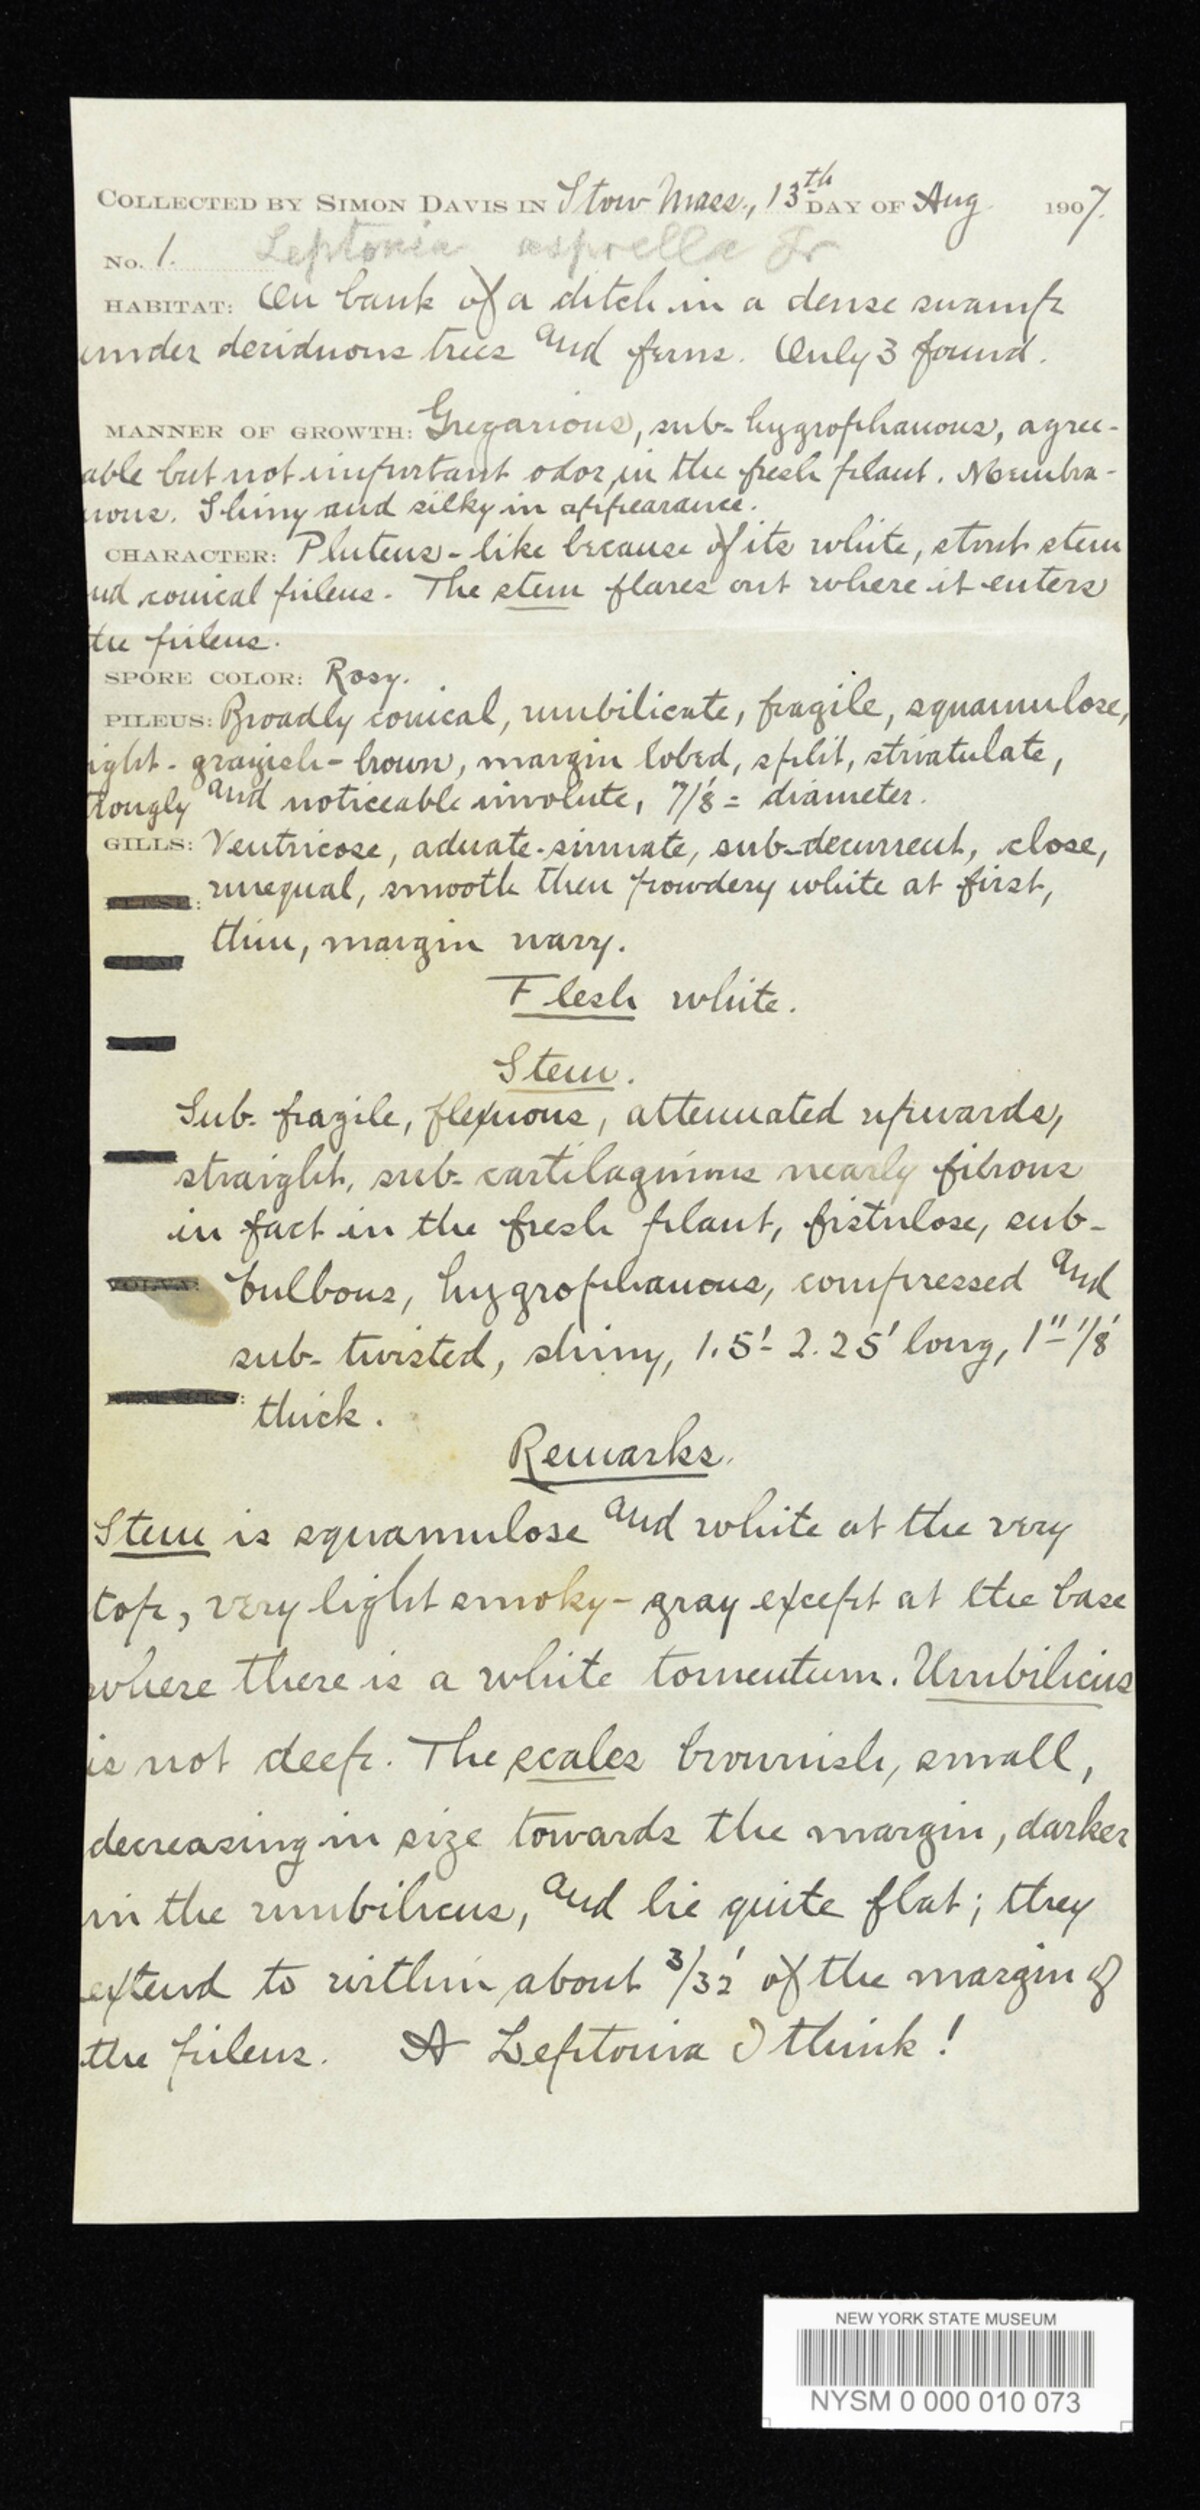 COLLECTED BY SIMON DAVIS IN Stow Mass., 13th DAY OF Aug 1907.
No. 1. Leptonia asprella Fr
HABITAT: On bank of a ditch in a dense swamp
under deciduous trees and ferns. Only 3 found.
MANNER OF GROWTH: Gregarious, sub-hygrophanous, agree-
able but not important odor in the fresh plant. Membra-
nous. Shiny and silky in appearance.
CHARACTER: Pluteus-like because of its white, stout stem
nd conical pileus. The stem flares out where it enters
the pileus.
SPORE COLOR: Rosy.
PILEUS: Broadly conical, umbilicate, fragile, squamulose,
ight-grayish-brown, margin lobed, split, striatulate,
trongly and noticeable involute, 7/8' = diameter.
GILLS: Ventricose, adnate-sinuate, sub-decurrent, close,
unequal, smooth then powdery white at first,
thin, margin wavy.
Flesh white.
Stem.
Sub-fragile, flexuous, attenuated upwards,
straight, sub-cartilaginous nearly fibrous
in fact in the fresh plant, fistulose, sub-
bulbous, hygrophanous, compressed and
sub-twisted, shiny, 1.5'-2.25' long, 1"-1/8'
thick.
Remarks.
Stem is squamulose and white at the very
top, very light smoky-gray except at the base
where there is a white tomentum. Umbilicus
is not deep. The scales brownish, small,
decreasing in size towards the margin, darker
in the umbilicus, and lie quite flat; they
extend to within about 3/32' of the margin of
the pileus. A Leptonia I think!
NEW YORK STATE MUSEUM
NYSM 0 000 010 073